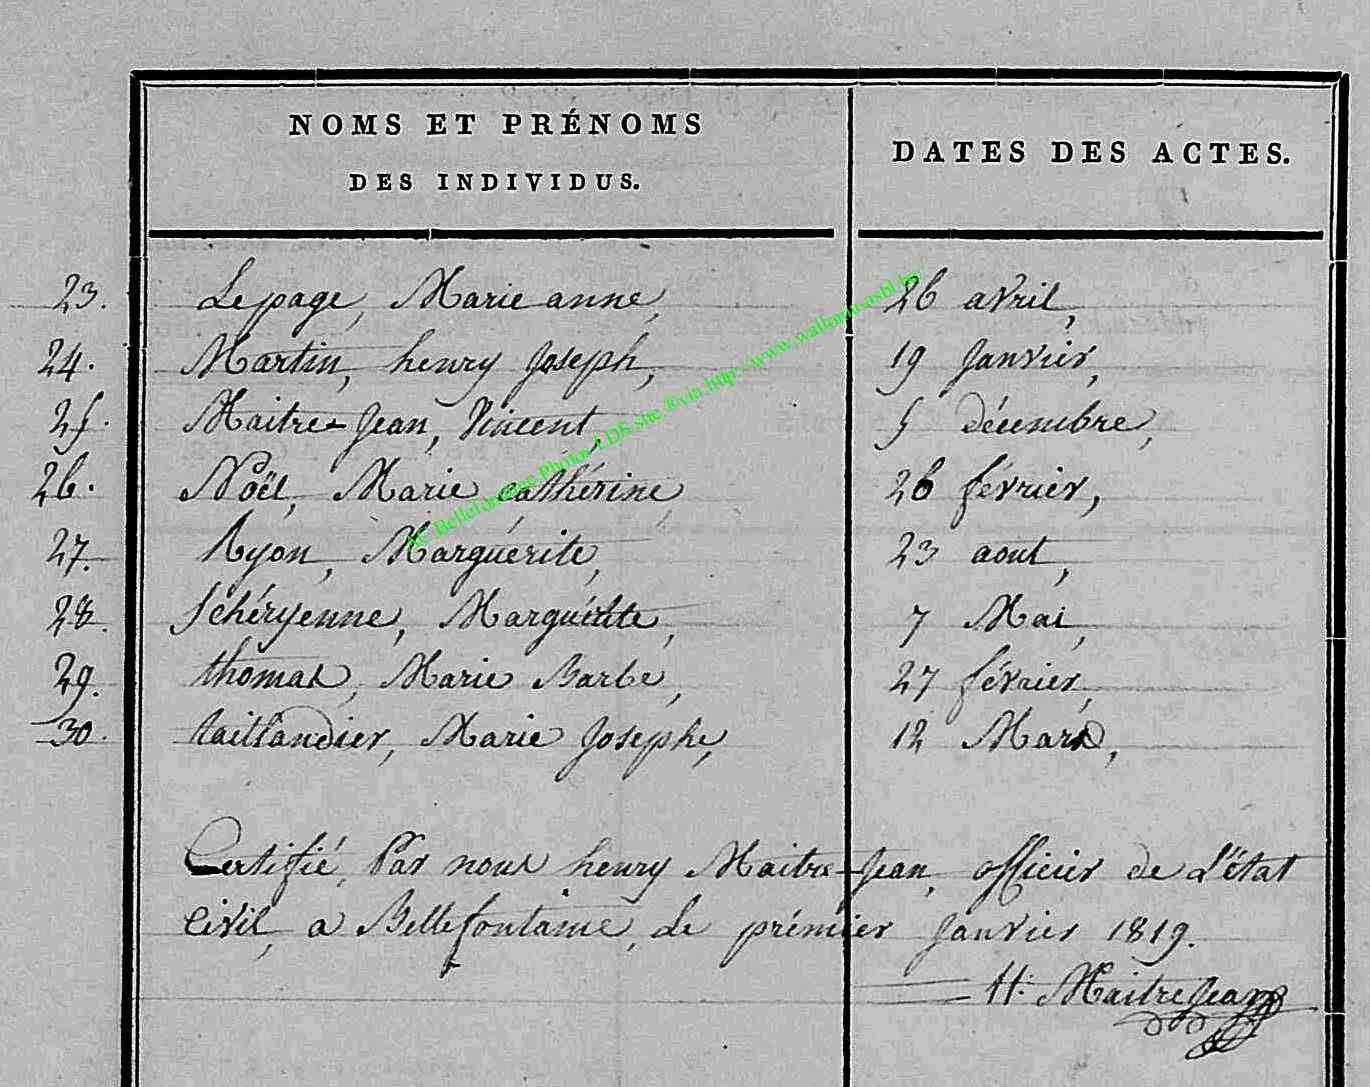 NOMS ET PRÉNOMS
DES INDIVIDUS.
DATES DES ACTES.
23. Lepage, Marie anne, 26 avril,
24. Martin, henry Joseph, 19 Janvier,
25. Maitre-Jean, Vincent, 5 décembre,
26. Noël, Marie cathérine, 26 février,
27. Ryon, Marguérite, 23 aout,
28. Schéryenne, Marguérite, 7 Mai,
29. thomas, Marie Barbe, 27 février,
30. taillandier, Marie Josephe, 12 Mars,
Certifié, Par nous henry Maitre-Jean, officier de L'état
civil, a Bellefontaine, Le prémier Janvier 1819.
H. MaitreJean
Bellefontaine Photos LDS site via http://www.wallonia-asbl.be